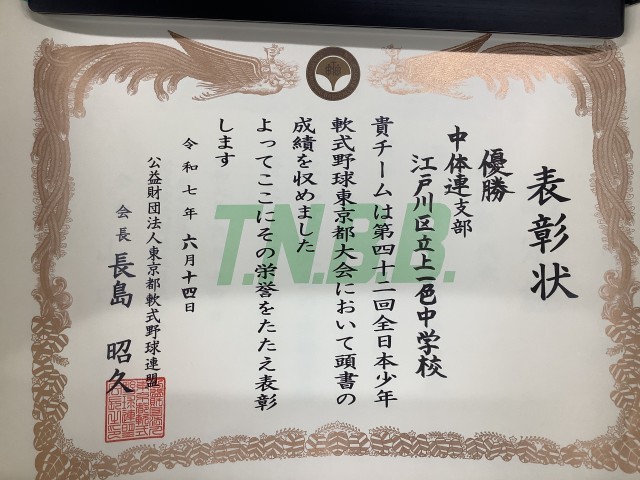 表彰状
優勝
中体連支部
江戸川区立上一色中学校
貴チームは第四十二回全日本少年
軟式野球東京都大会において頭書の
成績を収めました
よってここにその栄誉をたたえ表彰
します
令和七年六月十四日
公益財団法人東京都軟式野球連盟
会長 長島昭久
T.N.B.B.